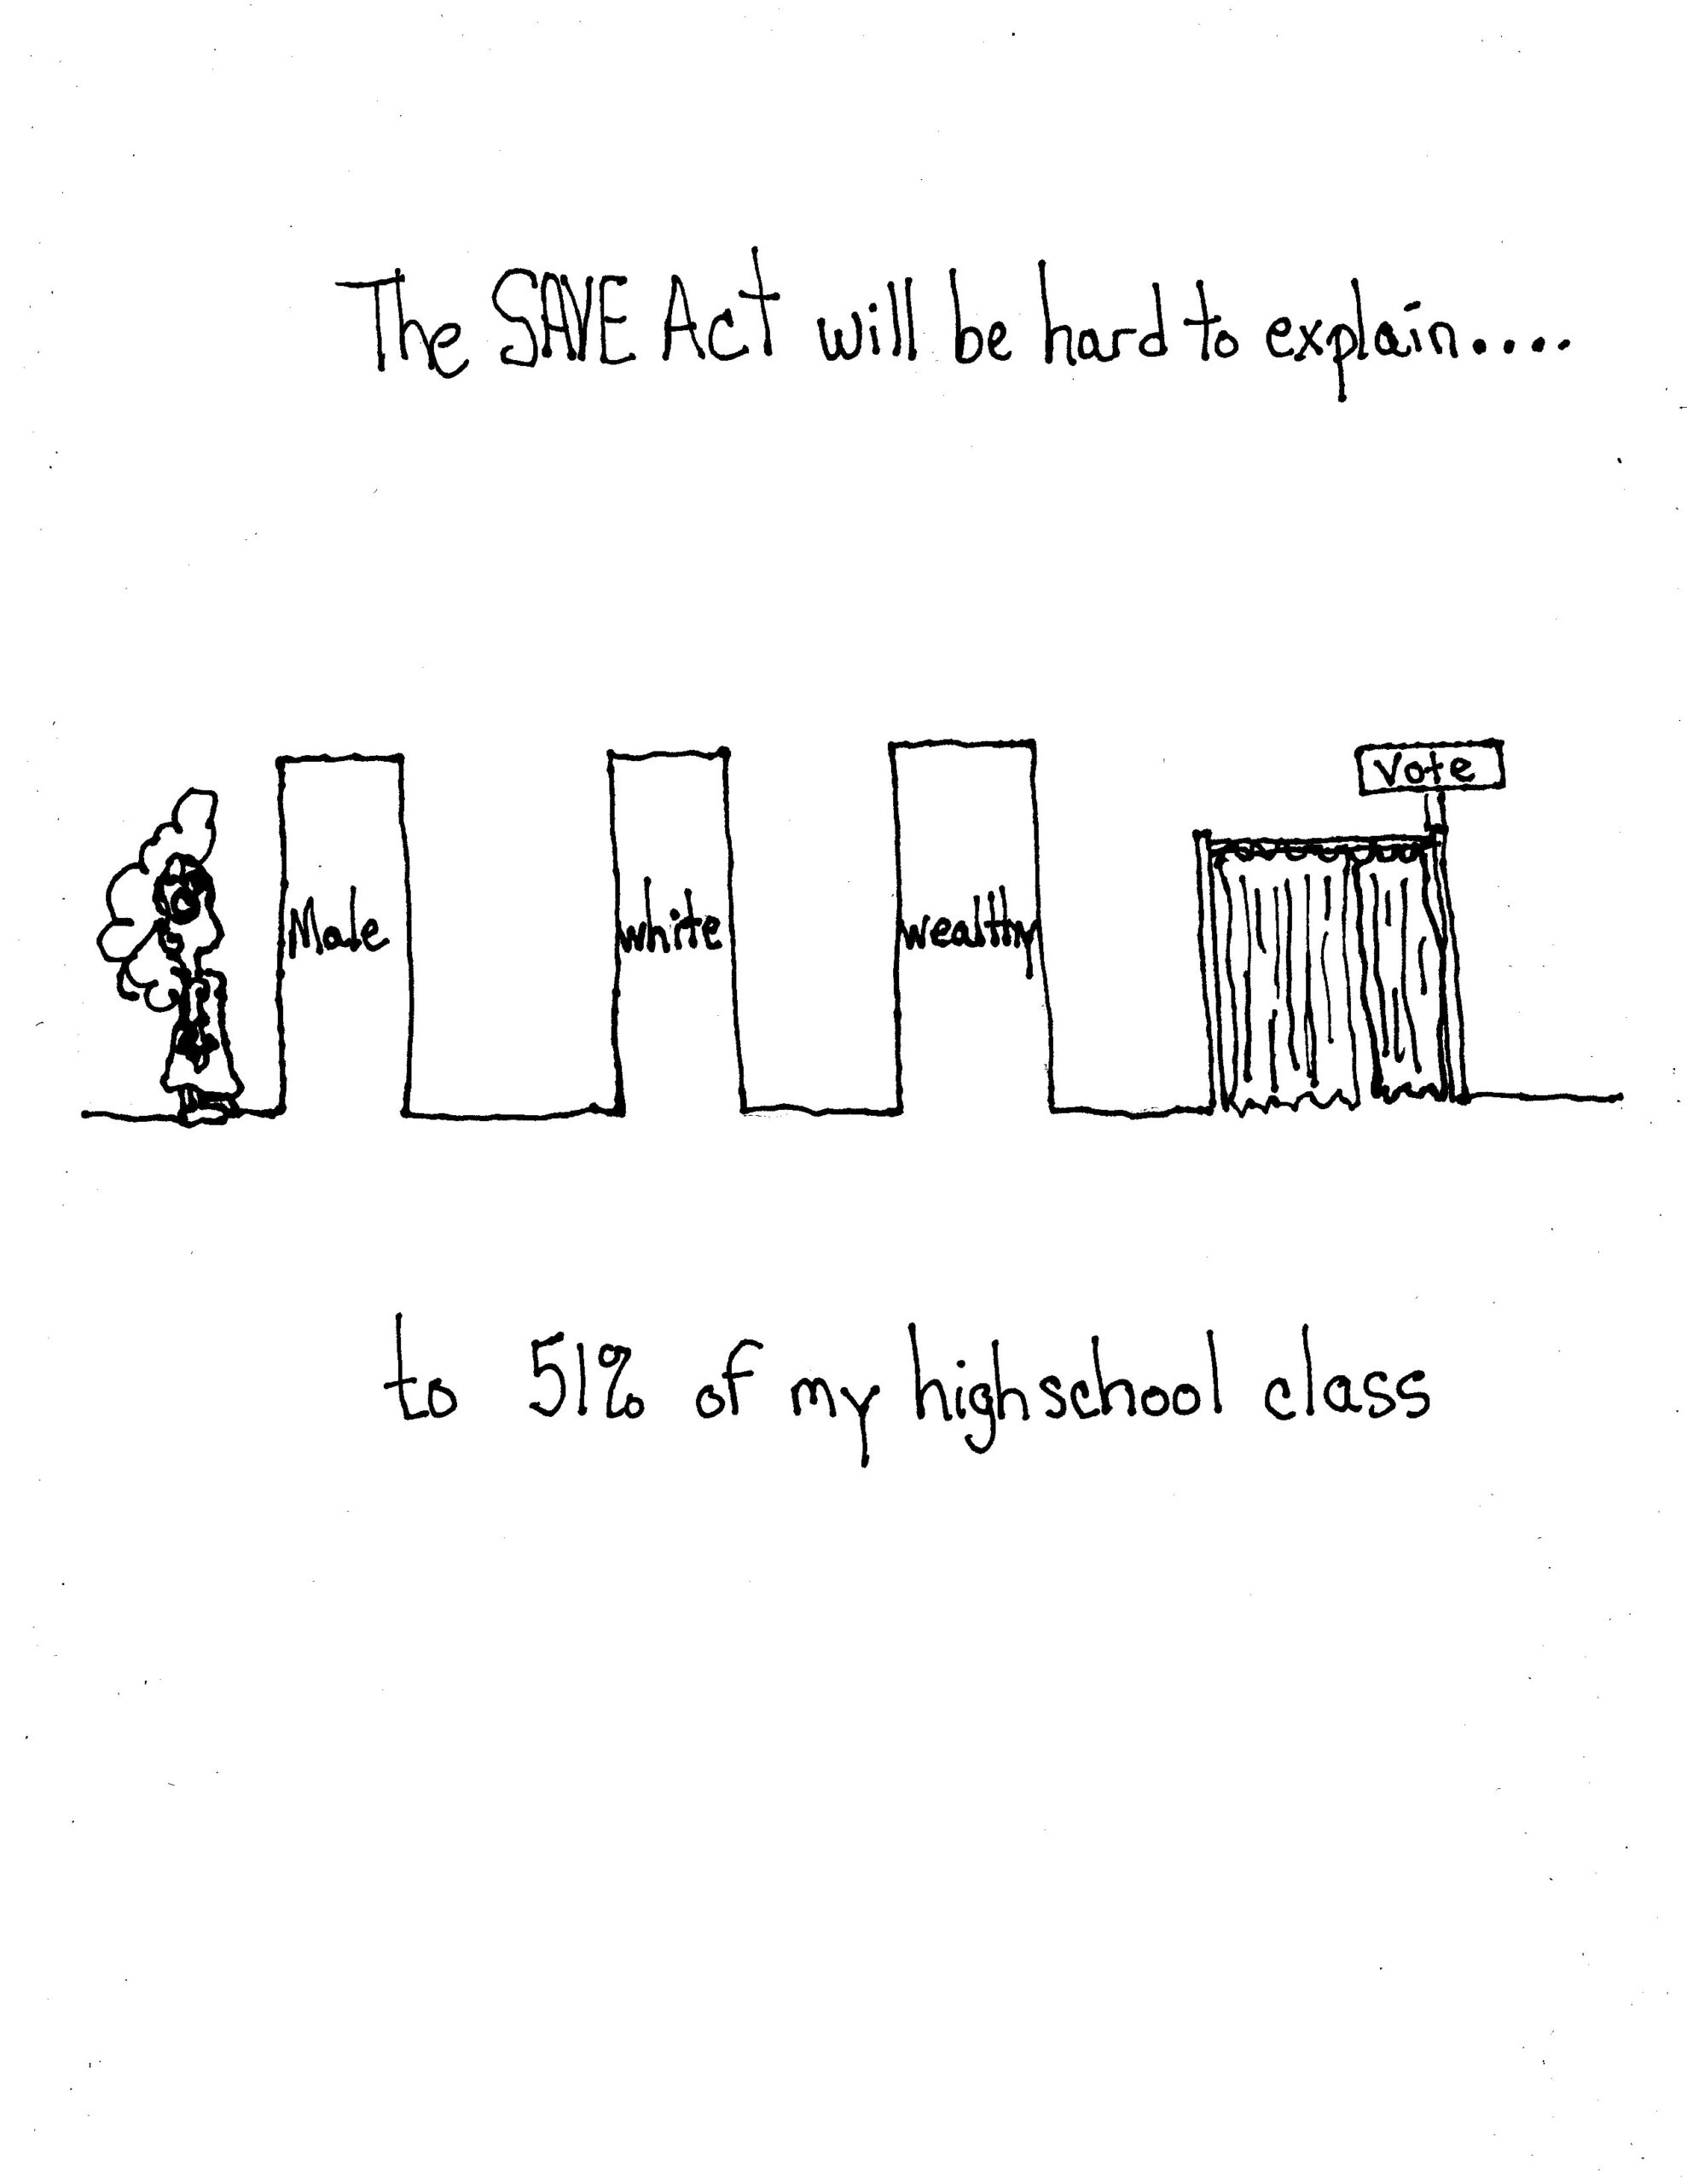 The SAVE Act will be hard to explain....
Vote
Male
white
wealthy
to 51% of my highschool class